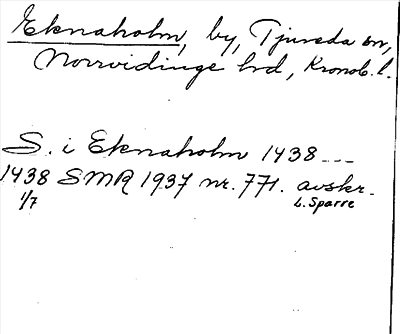 Eknaholm, by, Tjureda sn,
Norrvidinge hd, Kronob. l.
S. i Eknaholm 1438 ---
1438 SMR 1937 nr. 771. avskr.
1/7 L. Sparre